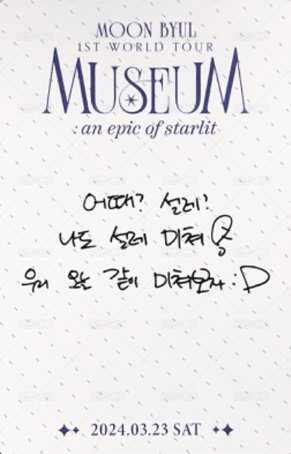 MOON BYUL
1ST WORLD TOUR
MUSEUM
: an epic of starlit
어때? 설레?
나도 설레 미쳐
우리 오늘 같이 미쳐보자 :D
2024.03.23 SAT